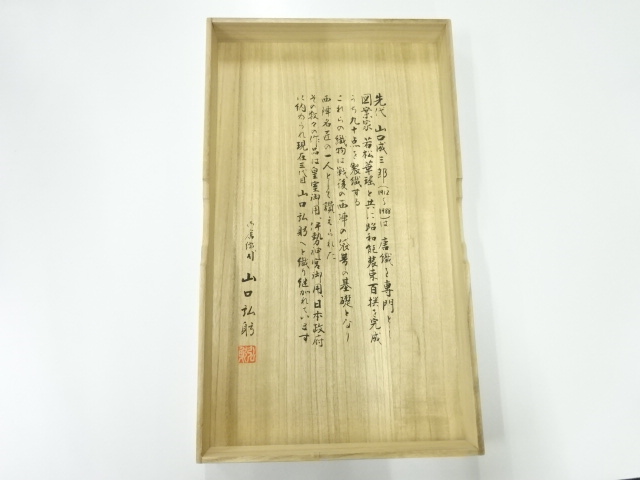 先代 山口威三郎(1912～1988)は 唐織を専門とし
図案家 若松華瑤と共に昭和能装束百撰を完成
うち九十点を製織する
これらの織物は戦後の西陣の袋帯の基礎となり
西陣名匠の一人として讃えられた
その数々の作品は皇室御用、伊勢神宮御用、日本政府
に納められ現在三代目 山口弘躬へと織り継がれています
山口弘躬